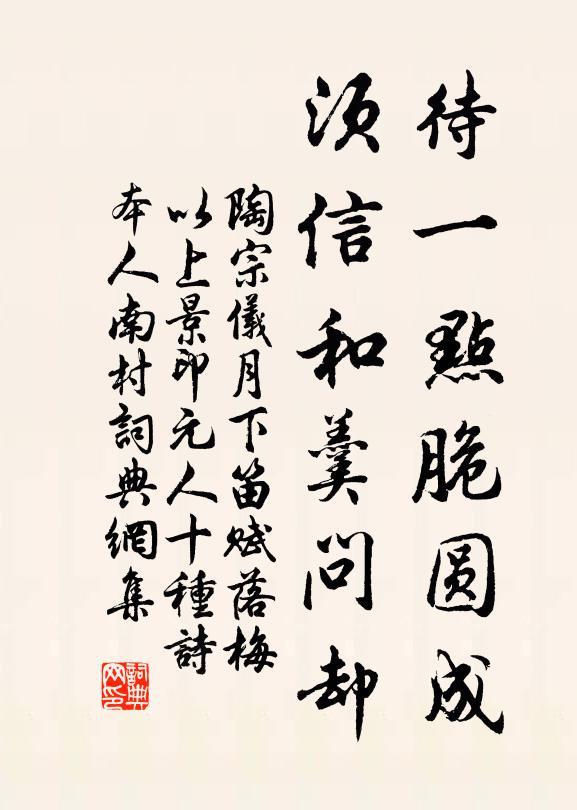 待一點脆圆成
須信和羹問却
陶宗儀月下笛賦落梅
以上景印元人十種詩
本人南村詞典網集
詞典网印